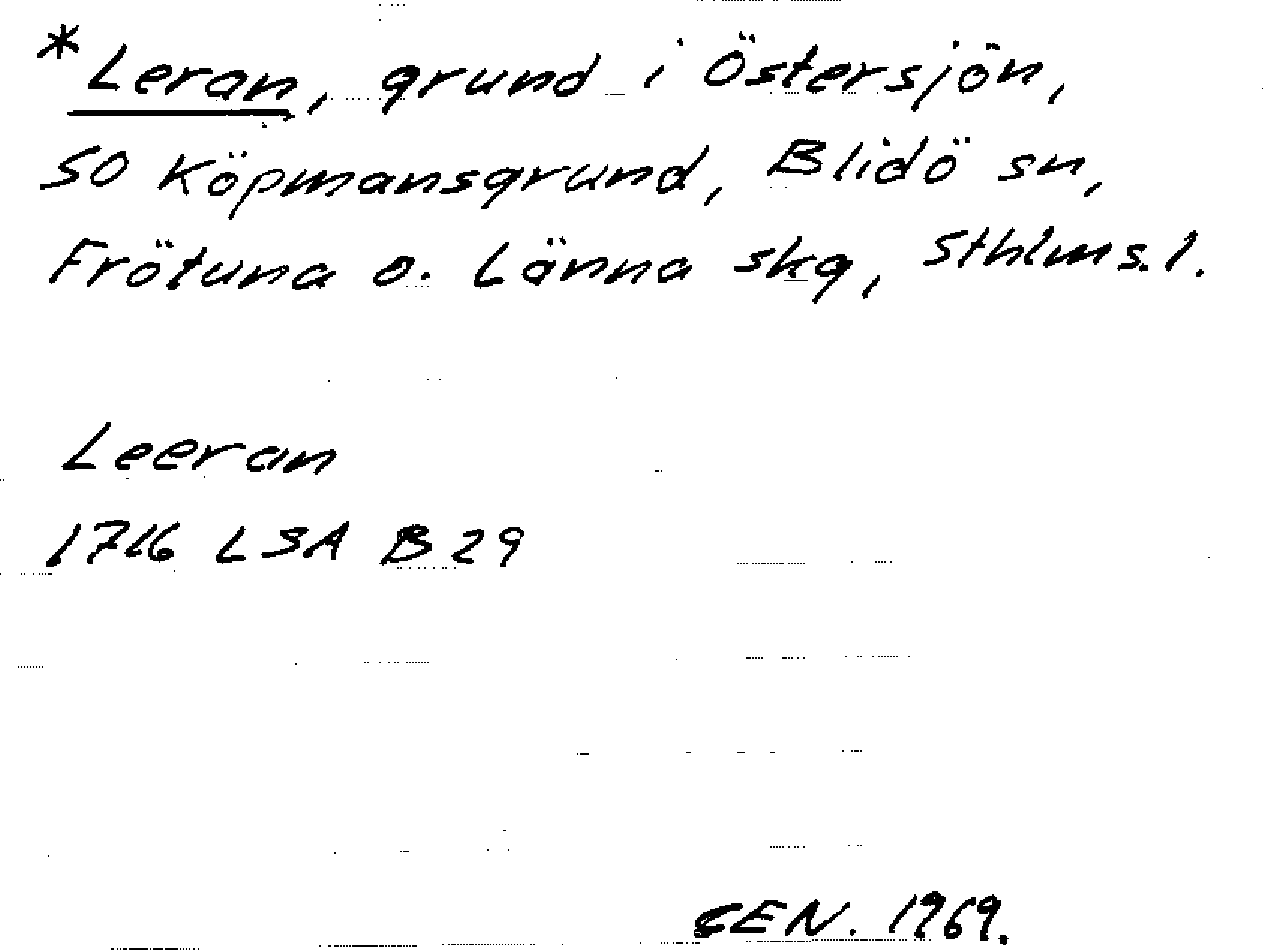 *Leran, grund i Östersjön,
SO Köpmansgrund, Blidö sn,
Frötuna o. Länna skg, Sthlms. l.
Leeran
1716 LSA B 29
CEN. 1969.